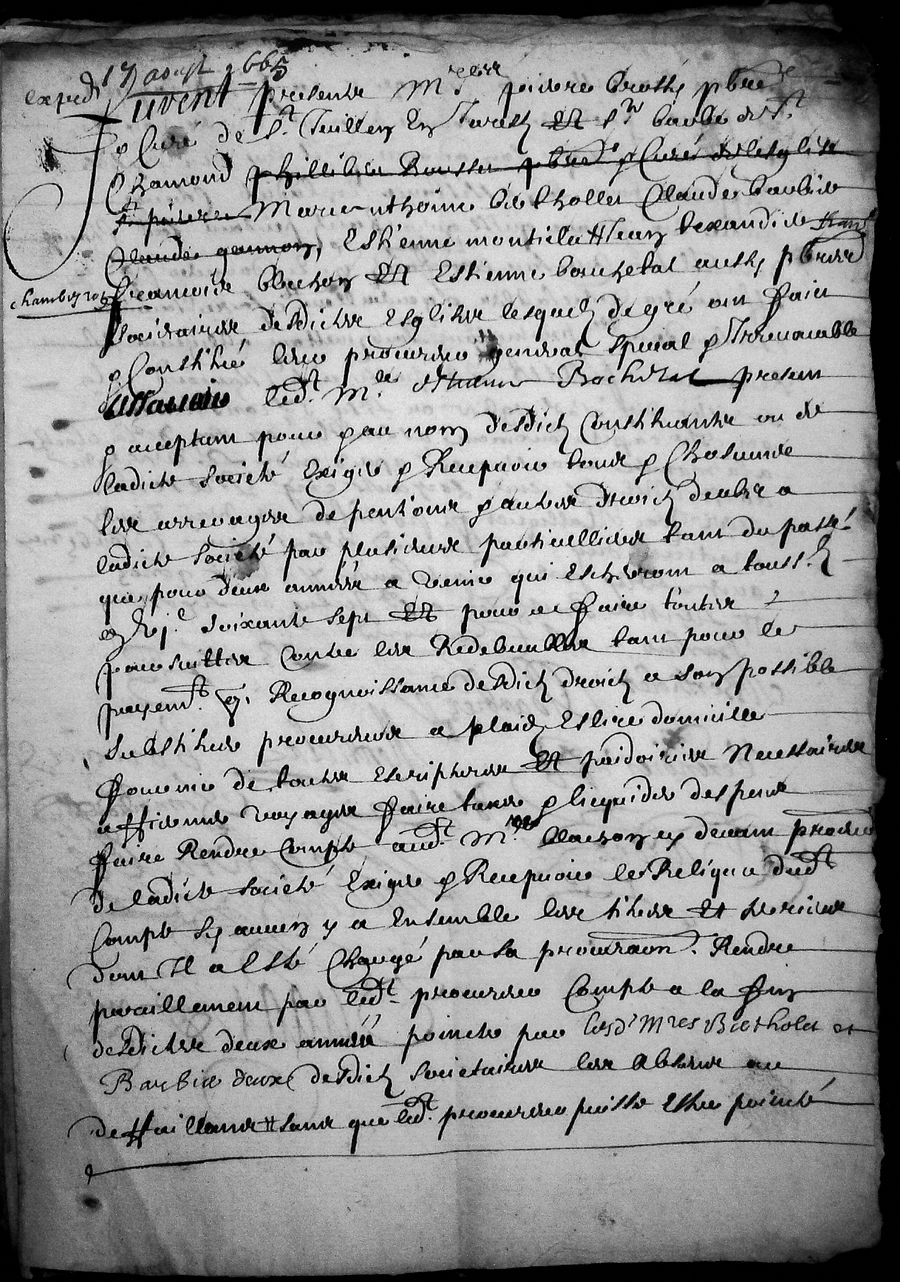 exped. 17 aoust 1665
Furent presents Mres pierre brossy pbre
& Curé de St Jullien En Jarestz Et Sr barbe de St
Chamond phillibert Rousset pbre & Curé de lesglise
St pierre Marc anthoine bertholet Claude barbier
Claude gannon, Estienne montiel Jean
francois Et Estienne bouchetal aussy pbres
chambeyron
societaires desdictes Esglises lesquelz de gré ont fait
& Constitué leur procureur general special & Irrevocable
ledt Mre Bochetal present
& acceptant pour & au nom desdictz Constituants ou de
ladicte societé Exiger & Recepvoir tous & Chascungs
les arrerages de pentions & autres droictz deubz a
ladicte societé par plusieurs particulliers tant du passé
que pour deux années a venir qui Escherront a toussts
soixante sept Et pour ce faire toutes
poursuittes Contre les Redebvables tant pour le
payemt & Recognoissance desdictz droictz a son possible
substituer procureurs a plaidz Eslire domicille
fournir de touttes Escriptures Et plaidoiries Necessaires
affirmer voyages faire taxer & licquider despens
faire Rendre Compte audt Mre devant procureur
de ladicte societé Exiger & Recepvoir le Reliqua dudt
Compte sy aucun y a Ensemble les tiltres Et terriers
dont Il a Esté Chargé par sa procuraon. Rendre
pareillement par ledt procureur Compte a la fin
desdictes deux années pointer par lesdt Mres Bertholet et
Barbier deux desdictz societaires les absens ou
deffaillants sans que ledt. procureur puisse Estre pointé